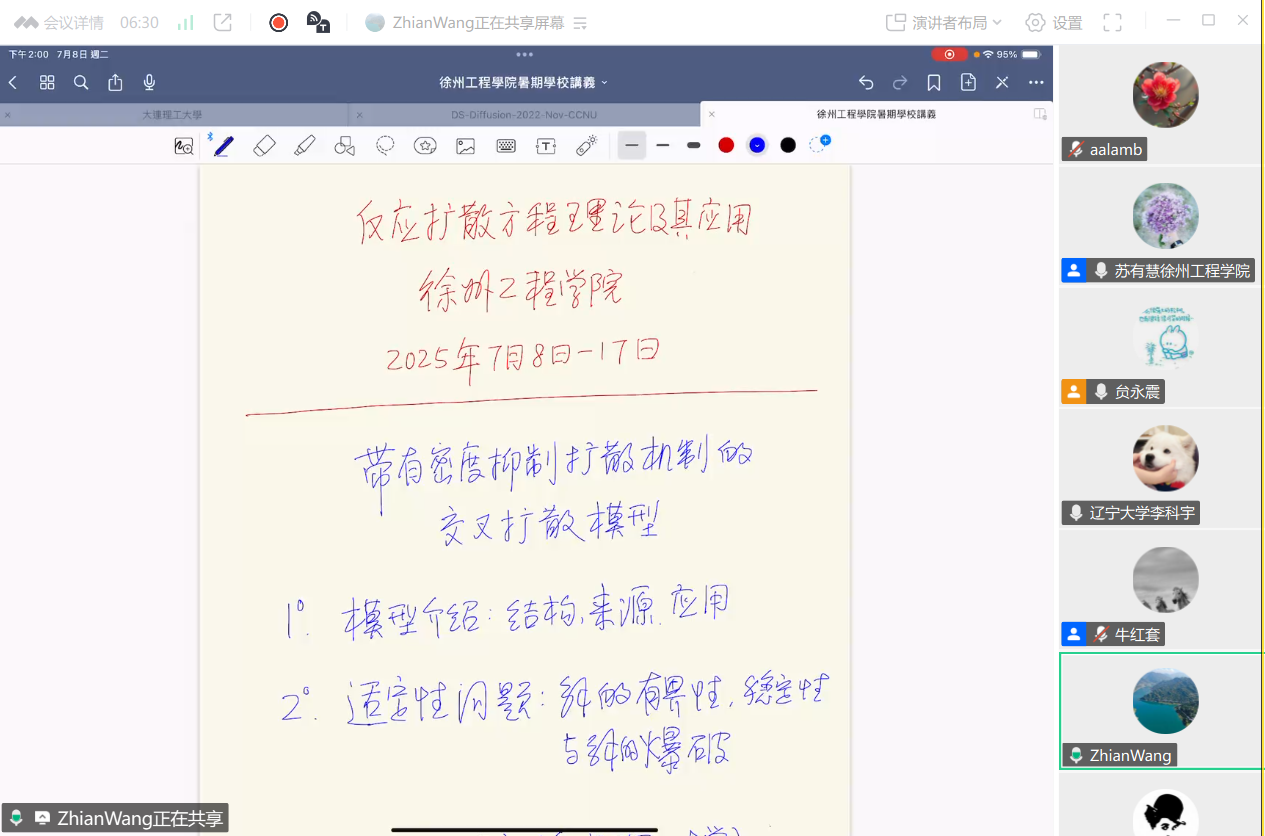 会议详情 06:30
ZhianWang正在共享屏幕
演讲者布局
设置
下午2:00 7月8日 週二
95%
徐州工程學院暑期學校講義
大連理工大學
DS-Diffusion-2022-Nov-CCNU
徐州工程學院暑期學校講義
反应扩散方程理论及其应用
徐州工程学院
2025年7月8日-17日
带有密度抑制扩散机制的
交叉扩散模型
1°. 模型介绍: 结构, 来源. 应用
2°. 适定性问题: 解的有界性, 稳定性
与解的爆破
ZhianWang正在共享
aalamb
苏有慧徐州工程学院
贠永震
辽宁大学李科宇
牛红套
ZhianWang